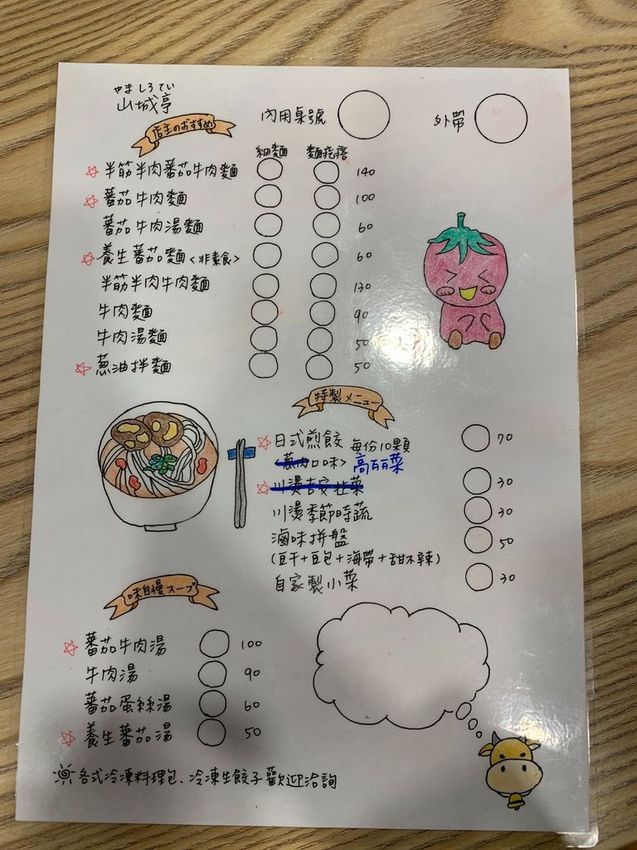 やましろてい
山城亭
內用桌號
外帶
店主のおすすめ
細麵 麵疙瘩
半筋半肉蕃茄牛肉麵 140
蕃茄牛肉麵 100
蕃茄牛肉湯麵 60
養生蕃茄麵<非素食> 60
半筋半肉牛肉麵 130
牛肉麵 90
牛肉湯麵 50
蔥油拌麵 50
特製メニュー
日式煎餃 每份10顆 70
<蔥肉口味> 高麗菜
川燙吉安壯菜 30
川燙季節時蔬 30
滷味拼盤 50
(豆干+豆包+海帶+甜不辣)
自家製小菜 30
味自慢スープ
蕃茄牛肉湯 100
牛肉湯 90
蕃茄蛋絲湯 60
養生蕃茄湯 50
各式冷凍料理包、冷凍生餃子歡迎洽詢